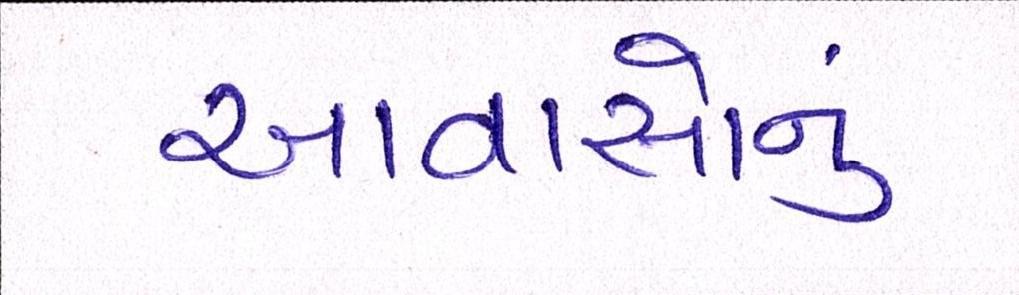 આવાસોનું